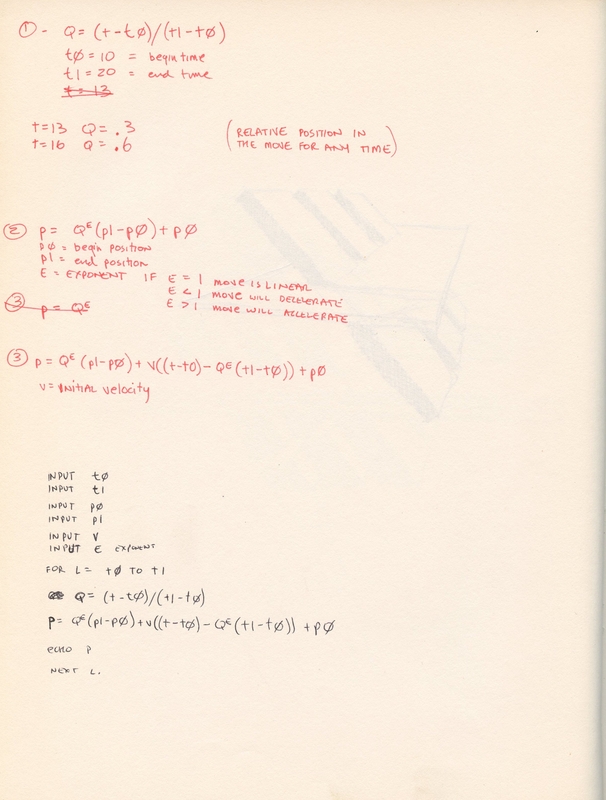 ① - Q = (t-tØ)/(t1-tØ)
tØ = 10 = begin time
t1 = 20 = end time
t = 13
t=13 Q = .3
t=16 Q = .6
(RELATIVE POSITION IN
THE MOVE FOR ANY TIME)
② p = Q^E (p1-pØ) + pØ
pØ = begin position
p1 = end position
E = EXPONENT IF E = 1 MOVE IS LINEAR
E < 1 MOVE WILL DECELERATE
E > 1 MOVE WILL ACCELERATE
③ p = Q^E
③ p = Q^E (p1-pØ) + V((t-tO) - Q^E (t1-tØ)) + pØ
V = INITIAL velocity
INPUT tØ
INPUT t1
INPUT pØ
INPUT p1
INPUT V
INPUT E EXPONENT
FOR L = tØ TO t1
Q = (t-tØ)/(t1-tØ)
P = Q^E (p1-pØ) + V((t-tØ) - Q^E (t1-tØ)) + pØ
echo P
NEXT L.